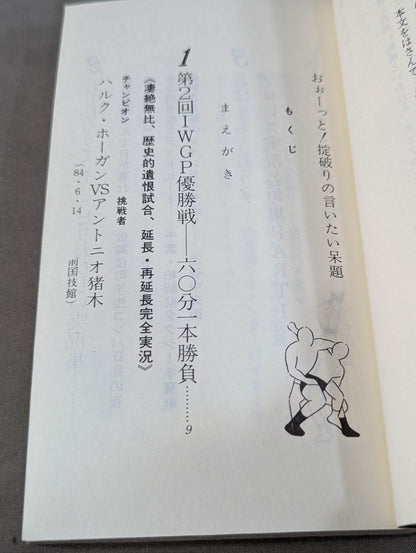 本文をはさんで
おぉーっと!掟破りの言いたい呆題
もくじ
まえがき
1 第2回IWGP優勝戦――六〇分一本勝負………9
《凄絶無比、歴史的遺恨試合、延長・再延長完全実況》
チャンピオン 挑戦者
ハルク・ホーガンVSアントニオ猪木
(84・6・14 蔵前国技館)